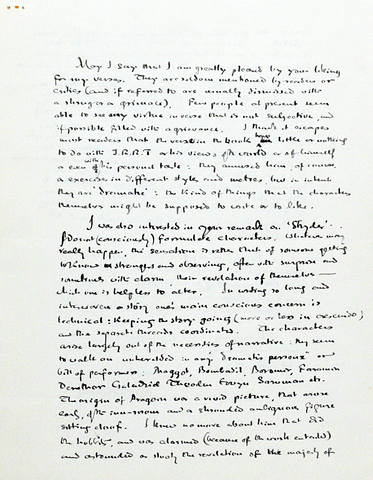 May I say that I am greatly pleased by your liking
for my verses. They are seldom mentioned by readers or
critics (and if referred to are usually dismissed with
a shrug or a grimace). Few people at present seem
able to see any virtue in verse that is not subjective, and
if possible filled with a grievance. I think it escapes
most readers that the verses in the book have little or nothing
to do with J.R.R.T. or his views of the world or of himself
or even with his personal taste: they amused him, of course,
as exercises in different style and metres but in intent
they are 'dramatic': the kind of things that the characters
themselves might be supposed to write or to like.
I was also interested in your remarks on 'Strider'.
I do not (consciously) formulate characters. Whatever may
really happen, the sensation is rather that of someone getting
to know strengths and observing, often with surprise and
sometimes with alarm their revelation of themselves —
which one is helpless to alter. In writing so long and
interwoven a story one's main conscious concern is
technical: keeping the story going (more or less in crescendo)
and the separate threads coordinated. The characters
arose largely out of the necessities of narrative: they seem
to walk on unheralded in any 'dramatis personae' or
bill of performers: Maggot, Bombadil, Boromir, Faramir
Denethor Galadriel Theoden Eowyn Saruman etc.
The origin of Aragorn was a vivid picture, that arose
early, of the inn-room and a shrouded ambiguous figure
sitting aloof. I knew no more about him than did
the hobbits, and was alarmed (because of the work entailed)
and astounded as slowly the revelation of the majesty of